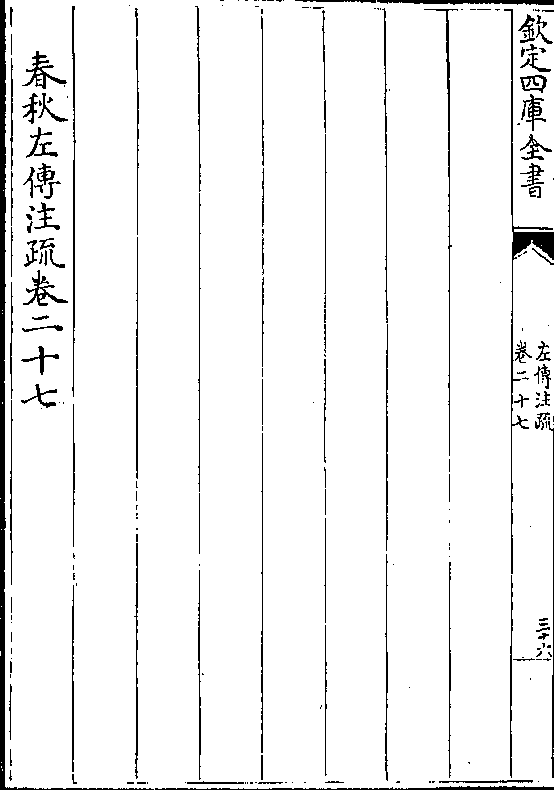 欽定四庫全書
左傳注疏
卷二十七
三十六
春秋左傳注疏卷二十七